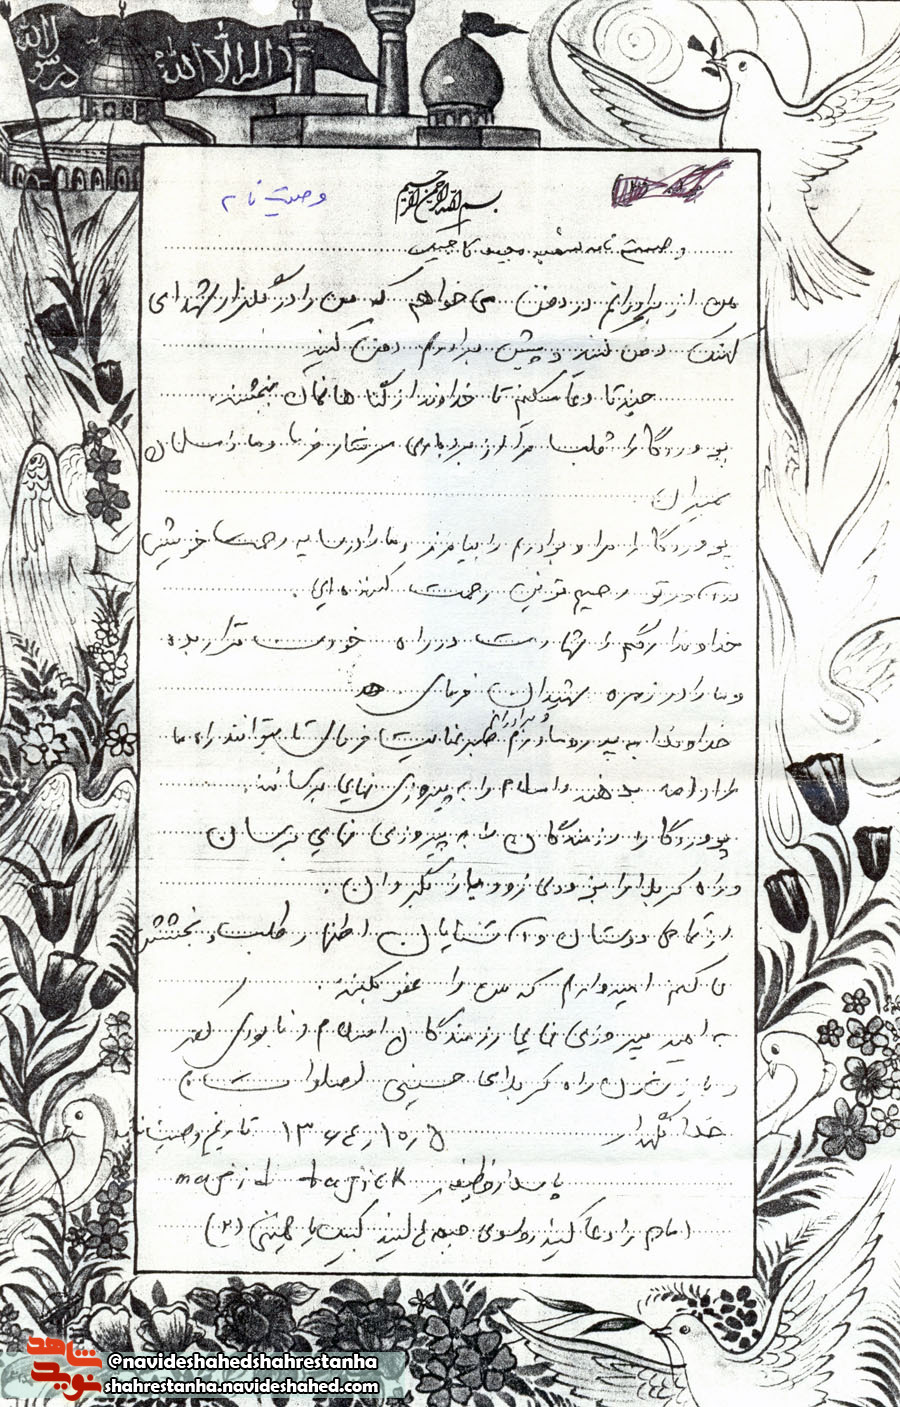 لا اله الا الله
رسول الله
وصیت نامه
بسم الله الرحمن الرحیم
وصیت نامه شهید مجید تاجیک
من از برادرانم در دفن می خواهم که من را در گلزار شهدای
کهنک دفن کنند و پیش برادرم دفن کنید
چند تا دعا میکنم تا خداوند از گناهانمان ببخشند.
پروردگارا قلب مرا از بردباری سرشار فرما و ما را مسلمان
بمیران
پروردگارا مرا و برادرم را بیامرز و ما را در سایه رحمت خویش
در آور تو رحیم ترین رحمت کننده ای.
خداوندا مرگم را شهادت در راه خودت قرار بده
و ما را در زمره شهیدان فرمای
خداوندا به پدر و مادرم و برادرانم صبر عنایت فرمای تا بتوانند راه ما
را ادامه بدهند و اسلام را به پیروزی نهایی برسانند.
پروردگارا رزمندگان را به پیروزی نهایی برسان
و راه کربلا را بزودی زود باز بگردان.
از تمامی دوستان و آشنایان طلب بخشش
می کنم امیدوارم که من را عفو بکنند.
به امید پیروزی نهایی رزمندگان اسلام و نابودی کفر
و باز شدن راه کربلای حسینی (صلوات)
خدانگهدار ۵ر۱۰ر۱۳۶۴ تاریخ وصیت نامه
پاسدار وظیفه magid tagick
امام را دعا کنید
@navideshahedshahrestanha
shahrestanha.navideshahed.com
شاهد
نوید